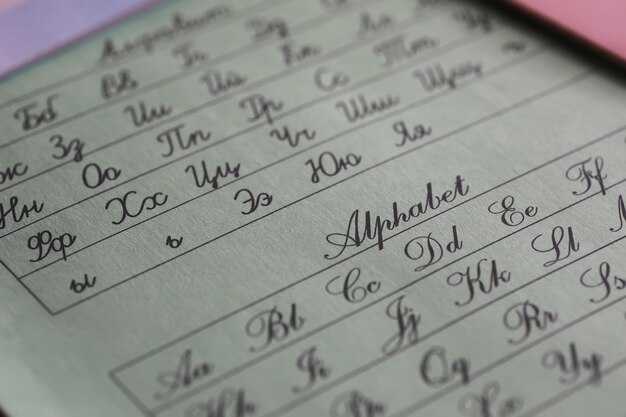 Алфавит
Бб Вв Гг Дд
Жж Зз Ии Йй Кк Лл
Нн Оо Пп Рр Сс Тт
Фф Хх Цц Чч Шш Щщ ъ
ы ь Ээ Юю Яя
Alphabet
Aa Bb Cc Dd Ee Ff
Hh Ii Jj Kk Ll
Pp Qq Rr Ss
Yy